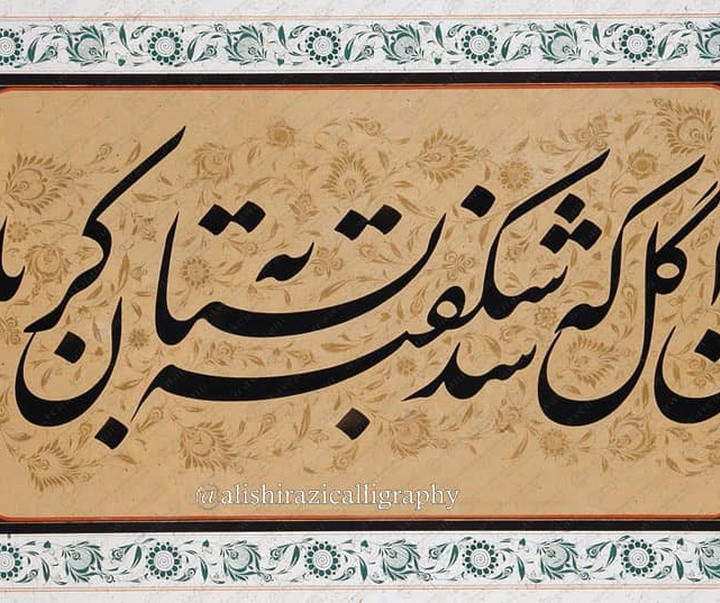 ان گل که شد شکفته به بستان کربلا
@alishirazicalligraphy